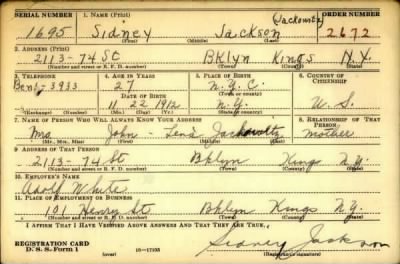 SERIAL NUMBER 1. NAME (Print) ORDER NUMBER
1695 Sidney Jackson (Jackowitz) 2672
(First) (Middle) (Last)
2. ADDRESS (Print)
2113-74 St BKlyn Kings N.Y.
(Number and street or R. F. D. number) (Town) (County) (State)
3. TELEPHONE 4. AGE IN YEARS 5. PLACE OF BIRTH 6. COUNTRY OF CITIZENSHIP
Ben6-3933 27 N.Y.C.
DATE OF BIRTH (Town or county)
11 22 1912 N.Y. U.S.
(Exchange) (Number) (Mo.) (Day) (Yr.) (State or country)
7. NAME OF PERSON WHO WILL ALWAYS KNOW YOUR ADDRESS 8. RELATIONSHIP OF THAT PERSON
Mrs John - Lena Jackowitz Mother
(Mr., Mrs., Miss) (First) (Middle) (Last)
9. ADDRESS OF THAT PERSON
2113-74 St Bklyn Kings N.Y.
(Number and street or R. F. D. number) (Town) (County) (State)
10. EMPLOYER'S NAME
Adolf White
11. PLACE OF EMPLOYMENT OR BUSINESS
191 Henry St Bklyn Kings N.Y.
(Number and street or R. F. D. number) (Town) (County) (State)
I AFFIRM THAT I HAVE VERIFIED ABOVE ANSWERS AND THAT THEY ARE TRUE.
REGISTRATION CARD
D. S. S. Form 1 (over) 16-17105 Sidney Jackson
(Registrant's signature)